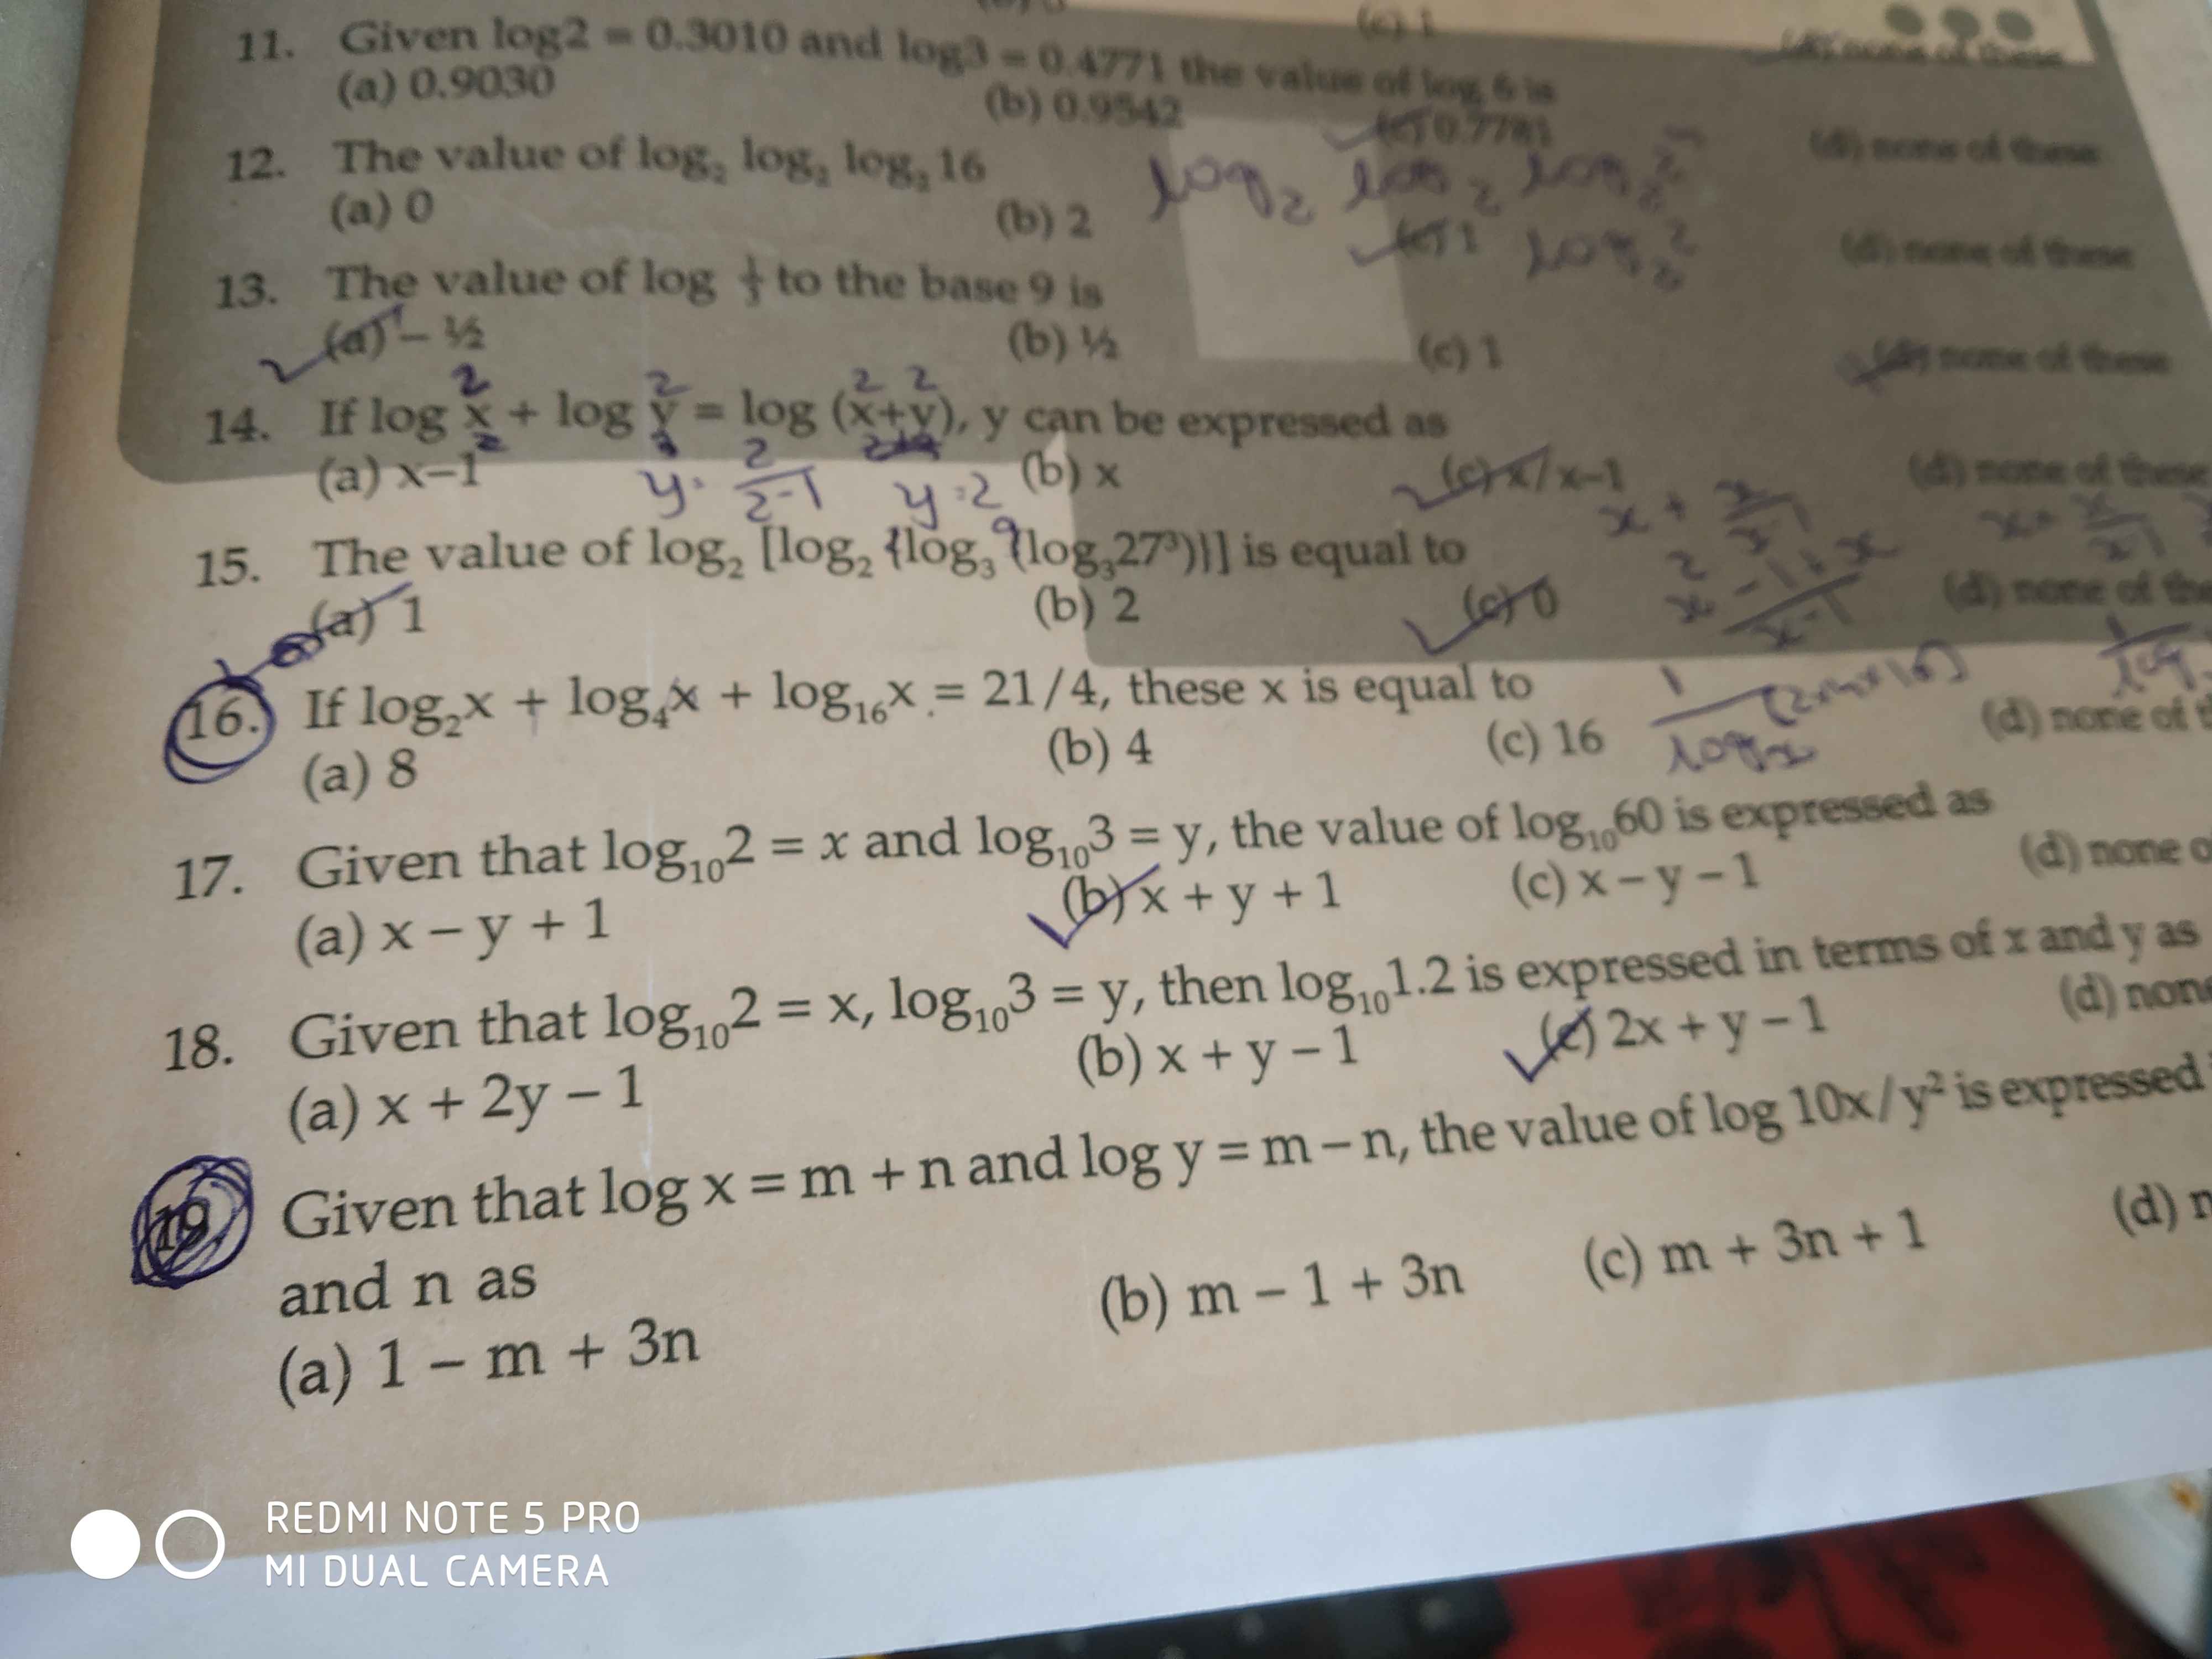 (c) 1
11. Given log2 = 0.3010 and log3 = 0.4771 the value of log 6 is
(a) 0.9030 (b) 0.9542 (c) 0.7781 (d) none of these
12. The value of log₂ log₂ log₂ 16
log₂ log₂ log₂
(a) 0 (b) 2 (c) 1 (d) none of these
13. The value of log ⅓ to the base 9 is
(a) – ½ (b) ½ (c) 1 (d) none of these
2 2 2 2
14. If log x + log y = log (x+y), y can be expressed as
(a) x–1 (b) x (c) x/x–1 (d) none of these
y = 2/2-1 y = 2
15. The value of log₂ [log₂ {log₃ (log₃27³)}] is equal to
(a) 1 (b) 2 (c) 0 (d) none of
16. If log₂x + log₄x + log₁₆x = 21/4, these x is equal to
(a) 8 (b) 4 (c) 16 (d) none of
17. Given that log₁₀2 = x and log₁₀3 = y, the value of log₁₀60 is expressed as
(a) x – y + 1 (b) x + y + 1 (c) x – y – 1 (d) none
18. Given that log₁₀2 = x, log₁₀3 = y, then log₁₀1.2 is expressed in terms of x and y as
(a) x + 2y – 1 (b) x + y – 1 (c) 2x + y – 1 (d) none
19 Given that log x = m + n and log y = m – n, the value of log 10x/y² is expressed
and n as
(a) 1 – m + 3n (b) m – 1 + 3n (c) m + 3n + 1 (d)
REDMI NOTE 5 PRO
MI DUAL CAMERA